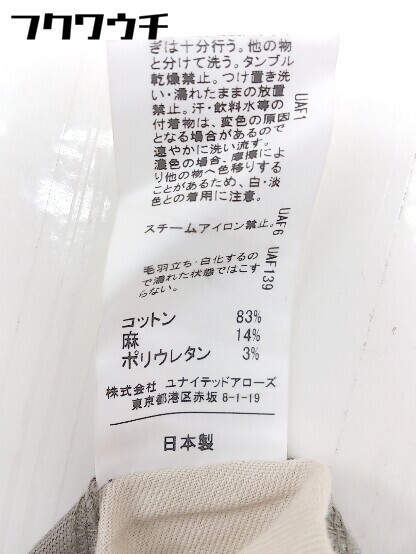 フクワウチ
ぎは十分行う。他の物
と分けて洗う。タンブル
乾燥禁止。つけ置き洗
い・濡れたままの放置
禁止。汗・飲料水等の
付着物は、変色の原因
となる場合があるので
速やかに洗い流す。
濃色の場合、摩擦によ
り他の物へ色移りする
ことがあるため、白・淡
色との着用に注意。
UAF1
スチームアイロン禁止。
UAF6
毛羽立ち・白化するの
で濡れた状態ではこす
らない。
UAF139
コットン 83%
麻 14%
ポリウレタン 3%
株式会社 ユナイテッドアローズ
東京都港区赤坂 8-1-19
日本製